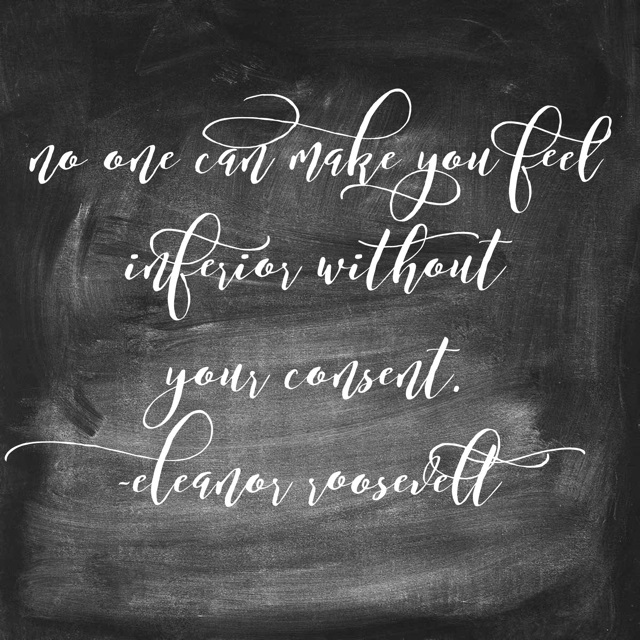 no one can make you feel
inferior without
your consent.
-eleanor roosevelt